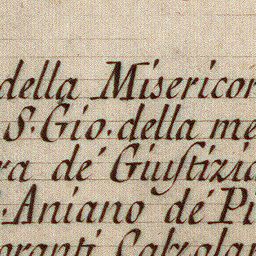 della Misericor
S. Gio. della me
ra de' Giuſtizia
. Aniano de' Pi
oranti Calzolar